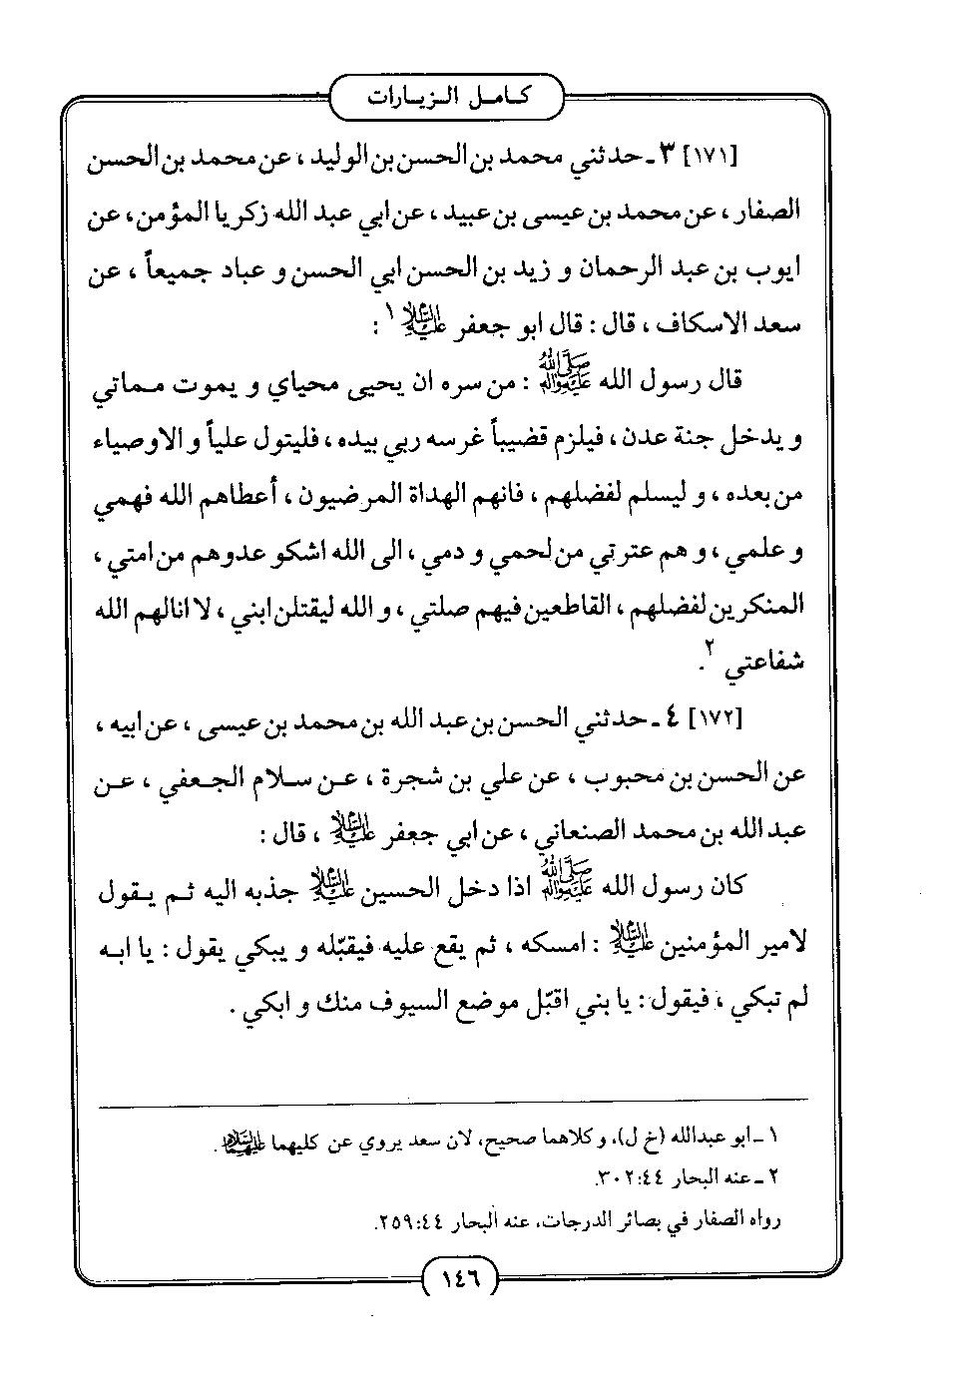 كامل الزيارات
[١٧١] ٣ ـ حدثني محمد بن الحسن بن الوليد ، عن محمد بن الحسن
الصفار ، عن محمد بن عيسى بن عبيد ، عن ابي عبد الله زكريا المؤمن ، عن
ايوب بن عبد الرحمان و زيد بن الحسن ابي الحسن و عباد جميعاً ، عن
سعد الاسكاف ، قال : قال ابو جعفر عليه السلام ١ :
قال رسول الله صلى الله عليه وآله : من سره ان يحيى محياي و يموت مماتي
و يدخل جنة عدن ، فيلزم قضيباً غرسه ربي بيده ، فليتول علياً و الاوصياء
من بعده ، و ليسلم لفضلهم ، فانهم الهداة المرضيون ، أعطاهم الله فهمي
و علمي ، و هم عترتي من لحمي و دمي ، الى الله اشكو عدوهم من امتي ،
المنكرين لفضلهم ، القاطعين فيهم صلتي ، و الله ليقتلن ابني ، لا انالهم الله
شفاعتي ٢.
[١٧٢] ٤ ـ حدثني الحسن بن عبد الله بن محمد بن عيسى ، عن ابيه ،
عن الحسن بن محبوب ، عن علي بن شجرة ، عن سلام الجعفي ، عن
عبد الله بن محمد الصنعاني ، عن ابي جعفر عليه السلام ، قال :
كان رسول الله صلى الله عليه وآله اذا دخل الحسين عليه السلام جذبه اليه ثم يقول
لامير المؤمنين عليه السلام : امسكه ، ثم يقع عليه فيقبّله و يبكي يقول : يا ابه
لم تبكي ، فيقول : يا بني اقبّل موضع السيوف منك و ابكي .
١ ـ ابو عبدالله (خ ل)، و كلاهما صحيح، لان سعد يروي عن كليهما عليهما السلام .
٢ ـ عنه البحار ٤٤:٣٠٢.
رواه الصفار في بصائر الدرجات، عنه البحار ٤٤:٢٥٩.
١٤٦